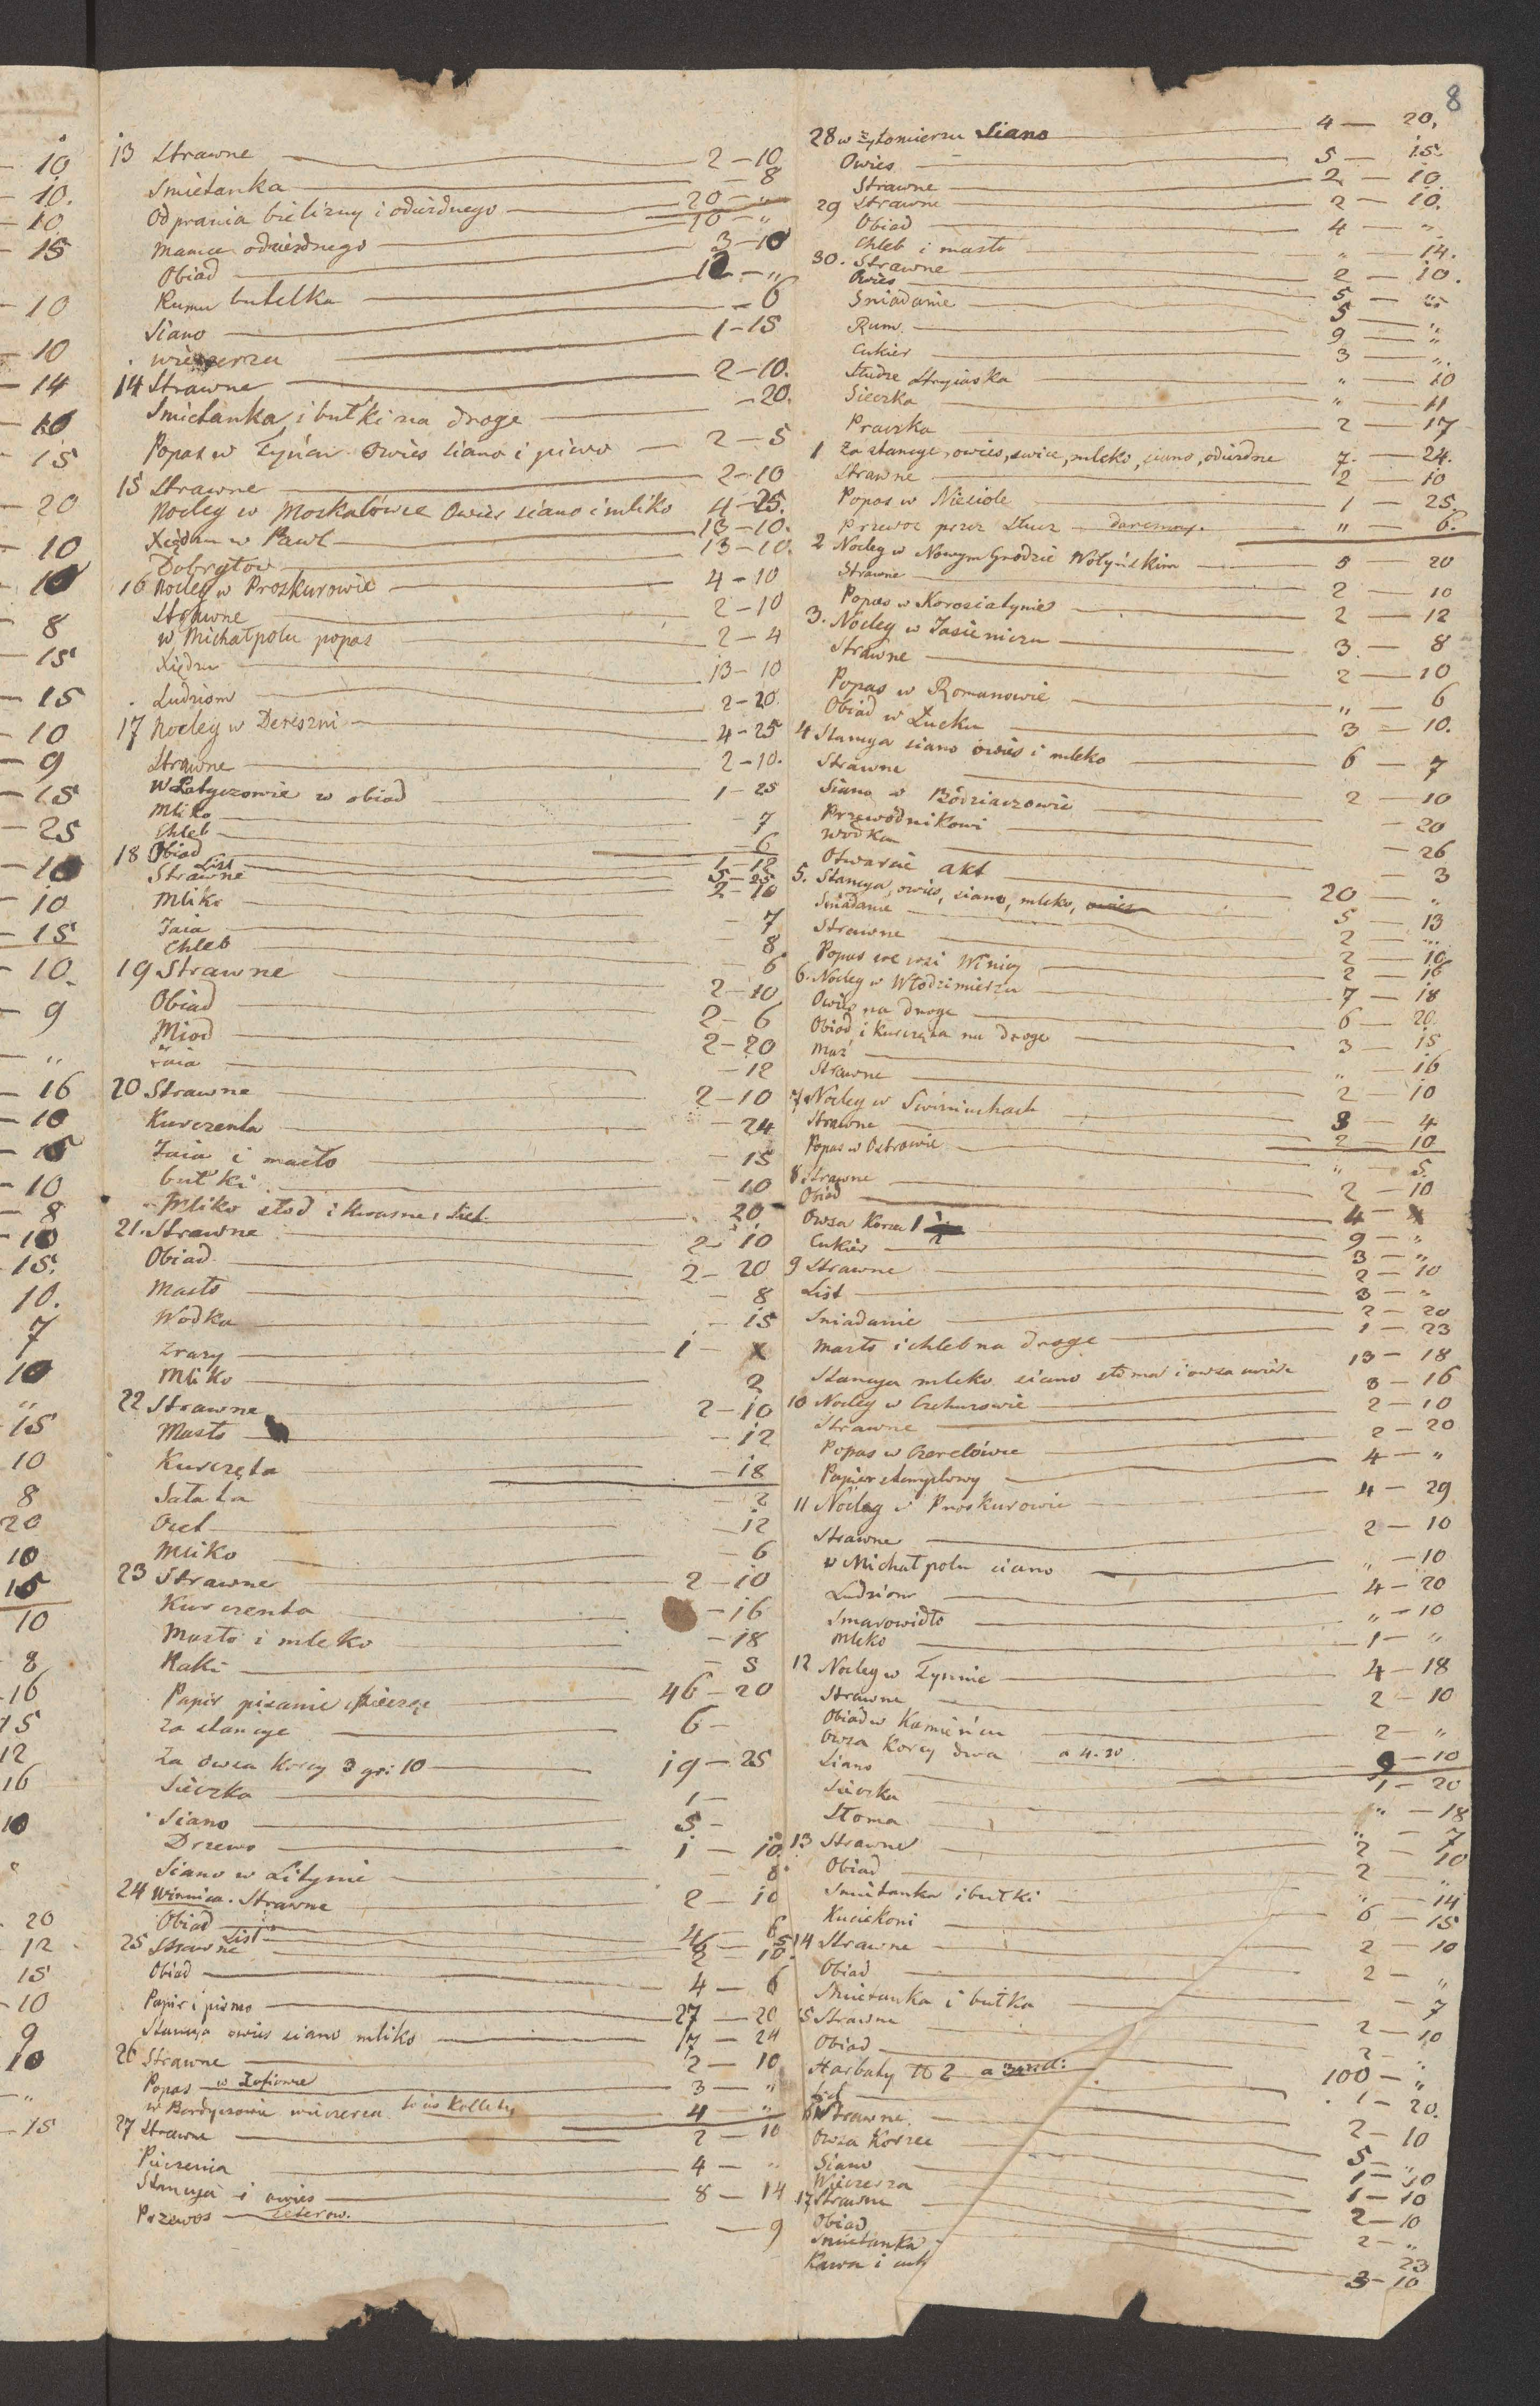 8
10
10.
10
15
10
10
14
10
15
20
10
10
8
15
15
10
9
15
25
10
10
15
10.
9
"
16
10
15
10
8
10
15.
10.
7
10
"
15
10
8
20
10
15
10
8
16
15
12
16
10
"
20
12
15
10
9
10
"
15
13 Strawne 2-10
Smietanka -8
Od prania bielizny i odiezdnego 20-"
Mamce odiezdnego 10-"
Obiad 3-10
Rumu butelka 12-"
Siano -6
wieczerza 1-15
14 Strawne 2-10.
Smietanka i bułki na droge -20.
Popas w Tyńcu Owies siano i piwo 2-5
15 Strawne 2-10
Nocleg w Moskalówce Owies siano i mliko 4-25.
Xiędzu w Pawł 13-10.
Dobrytow 13-10.
16 Nocleg w Proskurowie 4-10
Strawne 2-10
w Michałpolu popas 2-4
Xiędzu 13-10
Ludziom 2-20
17 Nocleg w Dereszni 4-25
Strawne 2-10.
W Latyczowie w obiad 1-25
Mliko -7
Chleb -6
18 Obiad 1-12
List 5-25
Strawne 2-10
Mliko -7
Jaia 8
Chleb 6
19 Strawne 2-10
Obiad 2-6
Miod 2-20
Jaia -12
20 Strawne 2-10
Kurczenta -24
Jaia i masło -15
bułki -10
Mliko słod i kwasne, List 20
21. Strawne 2-10
Obiad 2-20
Masło -8
Wodka -15
Zrazy 1-X
Mliko 2
22 Strawne 2-10
Masło -12
Kurczęta -18
Sałata -2
Ocet -12
Mliko -6
23 Strawne 2-10
Kurczenta -16
Masło i mleko -18
Raki -5
Papir pisanie i pieczęc 46-20
Za stancye 6-
Za owsa korcy 3 gr: 10 19-25
Sieczka 1-
Siano 5-
Drzewo 1-10
Siano w Litynie -8
24 Winnica. Strawne 2-10
Obiad 6
List 4-5
25 Strawne 2-10.
Obiad 4-6
Papir i pismo 27-20
Stancya owies siano mliko 17-24
26 Strawne 2-10
Popas w Zofiowce 3-"
w Berdyczowie wieczerza 4-"
27 Strawne 2-10
Pieczenia 4-"
Stancya i owies 8-14
Przewos Teterow. -9
28 w Zytomierzu Siano 4-20,
Owies 5-15.
Strawne 2-10.
29 Strawne 2-10.
Obiad 4-".
Chleb i masło "-14.
30. Strawne 2-10.
Owies 5-"
Sniadanie 5-"
Rum 9-"
Cukier 3-".
"-10
Sieczka "-11
Praczka 2-17
1 Za stancye, owies, swice, mleko, siano, odiezdne 7.-24.
Strawne 2-10
Popas w Niesiole 1-25.
Przewoz przez Słucz "-6.
2 Nocleg w Nowym Grodzie Wołyńskim 5 20
Strawne 2-10
Popas w Korosiatynie 2-12
3. Nocleg w Jasieniczu 3-8
Strawne 2-10
Popas w Romanowie "-6
Obiad w Łucku 3-10.
4 Stancya siano owies i mleko 6-7
Strawne 2-10
Siano w Bódziaczowie -20
Przewodnikowi -26
Wodka -3
Otwarcie akt 20-"
5. Stancya, owies, siano, mleko, owies 5-13
Sniadanie 2-"
Strawne 2-10
Popas we wsi Winicy 2-16
6. Nocleg w Włodzimierzu 7-18
Owies na droge 6-20
Obiad i kurczęta na droge 3-15
Maź "-16
Strawne 2-10
7. Nocleg w Swiniuchach 3-4
Strawne 2-10
Popas w Ostrowie "-5
8. Strawne 2-10
Obiad 4-X
Owsa Korzec 1 9-"
Cukier 3-"
9 Strawne 2-10
List 3-"
Sniadanie 2-20
Masło i chleb na droge 1-23
Stancya mleko siano słoma i owsa 13-18
10 Nocleg w 3-16
Strawne 2-10
Popas w Czerelówce 2-20
Papier stemplowy 4-"
11 Nocleg w Proskurowie 4-29
Strawne 2-10
w Michałpolu siano "-10
Ludziom 4-20
Smarowidło "-10
Mleko 1-"
12 Nocleg w Tynnie 4-18
Strawne 2-10
Obiad w Kamieńcu 2-"
Owsa korcy dwa a 4.20 9-10
Siano 1-20
Sieczka "-18
Słoma "-7
13 Strawne 2-10
Obiad 2-"
Smietanka i bułki "-14
6-15
14 Strawne 2-10
Obiad 2-"
Smietanka i bułka -7
15 Strawne 2-10
Obiad 2-"
Harbaty 2 100-"
List 1-20.
16 Strawne 2-10
Owsa Korzec 5-"
Siano 1-10
Wieczerza 1-10
17 Strawne 2-10
Obiad 2-"
Smietanka 23
Kawa i cuk 3-10